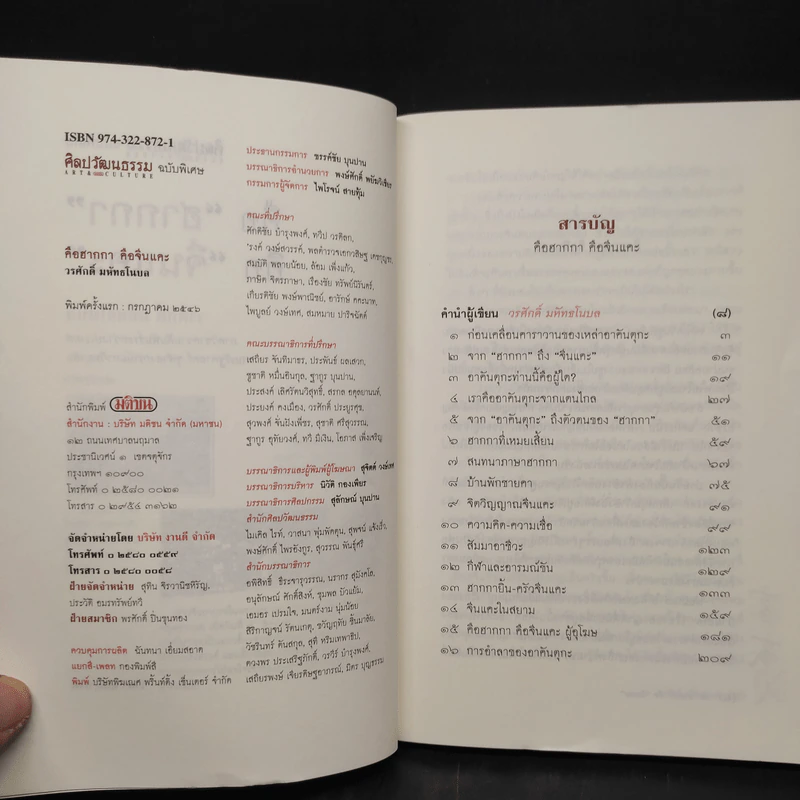 ISBN 974-322-872-1
ศิลปวัฒนธรรม ฉบับพิเศษ
ART & CULTURE
คือฮากกา คือจีนแคะ
วรศักดิ์ มหัทธโนบล
พิมพ์ครั้งแรก : กรกฎาคม ๒๕๔๖
สำนักพิมพ์ มติชน
สำนักงาน : บริษัท มติชน จำกัด (มหาชน)
๑๒ ถนนเทศบาลนฤมาล
ประชานิเวศน์ ๑ เขตจตุจักร
กรุงเทพฯ ๑๐๙๐๐
โทรศัพท์ ๐ ๒๕๘๐ ๐๐๒๑
โทรสาร ๐ ๒๙๕๔ ๓๑๖๒
จัดจำหน่ายโดย บริษัท งานดี จำกัด
โทรศัพท์ ๐ ๒๕๘๐ ๐๕๕๙
โทรสาร ๐ ๒๕๘๐ ๐๐๕๘
ฝ่ายจัดจำหน่าย สุทิน จิรวานิชหิรัญ,
ประวัติ อมรทรัพย์ทวี
ฝ่ายสมาชิก พรศักดิ์ ปิ่นขุนทอง
ควบคุมการผลิต ฉันทนา เอี่ยมสอาด
แยกสี-เพลท กองพิมพ์สี
พิมพ์ บริษัทพิฆเณศ พริ้นท์ติ้ง เซ็นเตอร์ จำกัด
ประธานกรรมการ ขรรค์ชัย บุนปาน
บรรณาธิการอำนวยการ พงษ์ศักดิ์ พยัฆวิเชียร
กรรมการผู้จัดการ ไพโรจน์ สายทุ้ม
คณะที่ปรึกษา
ศักดิชัย บำรุงพงศ์, ทวีป วรดิลก,
'รงค์ วงษ์สวรรค์, พลตำรวจเอกวสิษฐ เดชกุญชร,
สมบัติ พลายน้อย, ล้อม เพ็งแก้ว,
ภาษิต จิตรภาษา, เรืองชัย ทรัพย์นิรันดร์,
เกียรติชัย พงษ์พาณิชย์, อารักษ์ คคะนาท,
ไพบูลย์ วงษ์เทศ, สมหมาย ปาริจฉัตต์
คณะบรรณาธิการที่ปรึกษา
เสถียร จันทิมาธร, ประพันธ์ ผลเสวก,
ชูชาติ หมื่นอินกุล, ฐากูร บุนปาน,
ประสงค์ เลิศรัตนวิสุทธิ์, สรกล อดุลยานนท์,
ประยงค์ คงเมือง, วรศักดิ์ ประยูรศุข,
สุวพงศ์ จั่นฝังเพ็ชร, สุชาติ ศรีสุวรรณ,
ฐากูร อุทัยวงศ์, ทวี มีเงิน, โอภาส เพ็งเจริญ
บรรณาธิการและผู้พิมพ์ผู้โฆษณา สุจิตต์ วงษ์เทศ
บรรณาธิการบริหาร นิวัติ กองเพียร
บรรณาธิการศิลปกรรม สุลักษณ์ บุนปาน
สำนักศิลปวัฒนธรรม
ไมเคิล ไรท์, วาสนา พุ่มพัตคุน, สุพจน์ แจ้งเร็ว,
พงษ์ศักดิ์ ไพรอังกูร, สุวรรณ พันธุ์ศรี
สำนักบรรณาธิการ
อพิสิทธิ์ ธีระจารุวรรณ, นรากร สุมังคโล,
อนุลักษณ์ ศักดิ์สิงห์, ชุมพล
เอมอร เปรมใจ, มนตร์งาม นุ่มน้อย
สิริกาญจน์ รัตนเกตุ, ขวัญฤทัย
วัชรินทร์ ดันกูล, สุที
ดวงพร ประเสริฐภักดิ์, วรวีร์ บำรุงพงศ์,
เสถียรพงษ์ เจียรดิษฐอาภรณ์, มิตร บุญธรรม
สารบัญ
คือฮากกา คือจีนแคะ
คำนำผู้เขียน วรศักดิ์ มหัทธโนบล (๘)
๑ ก่อนเคลื่อนคาราวานของเหล่าอาคันตุกะ ๓
๒ จาก “ฮากกา” ถึง “จีนแคะ” ๑๑
๓ อาคันตุกะท่านนี้คือผู้ใด? ๑๙
๔ เราคืออาคันตุกะจากแดนไกล ๒๗
๕ จาก “อาคันตุกะ” ถึงตัวตนของ “ฮากกา” ๕๑
๖ ฮากกาที่เหมยเสี้ยน ๕๙
๗ สนทนาภาษาฮากกา ๖๗
๘ บ้านพักชายคา ๗๕
๙ จิตวิญญาณจีนแคะ ๙๑
๑๐ ความคิด-ความเชื่อ ๙๙
๑๑ สัมมาอาชีวะ ๑๒๓
๑๒ กีฬาและอารมณ์ขัน ๑๒๙
๑๓ ฮากกายิ้น-ครัวจีนแคะ ๑๓๓
๑๔ จีนแคะในสยาม ๑๕๙
๑๕ คือฮากกา คือจีนแคะ ผู้อุโฆษ ๑๘๑
๑๖ การอำลาของอาคันตุกะ ๒๐๙